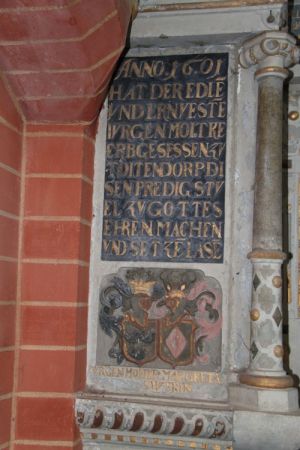 ANNO·1601
HAT DER EDLE
VND ERNVESTE
IVRGEN MOLTKE
ERBGESESSEN ZV
TOITENDORP DI
SEN PREDIGSTV
EL ZV GOTTES
EHREN MACHEN
VND SETZE LASE
IVRGEN MOLTKE MARGRETA